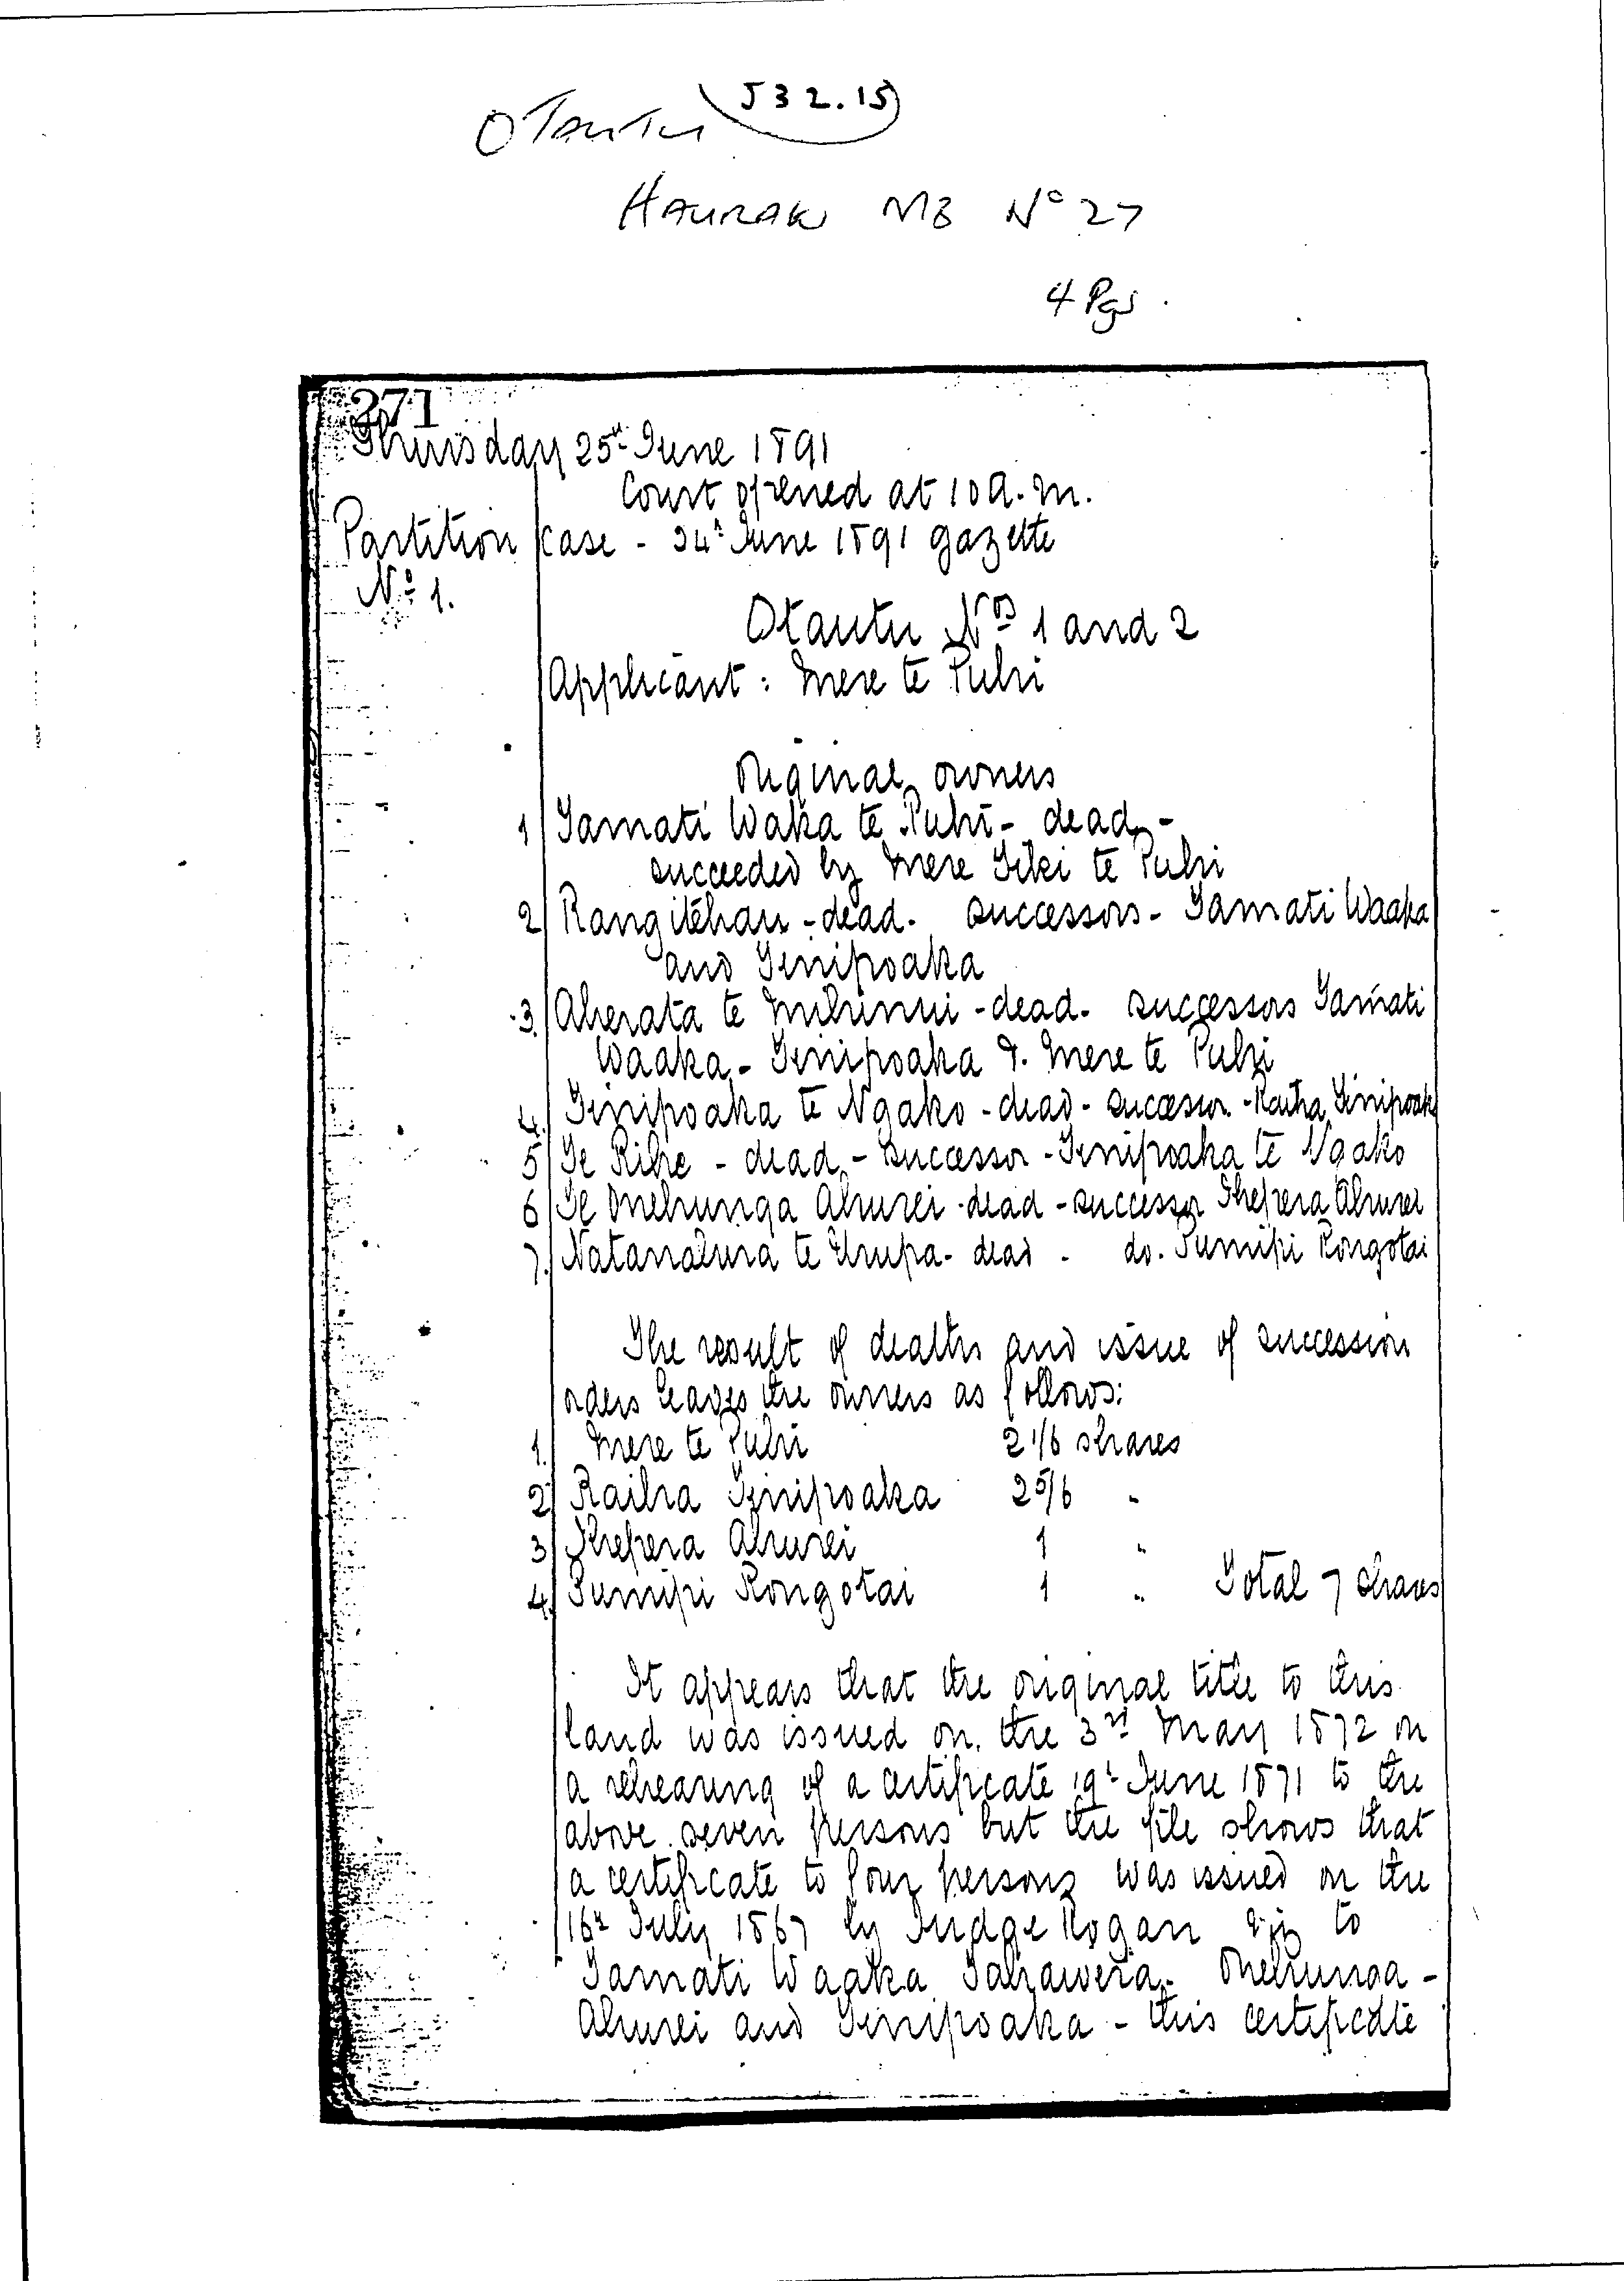 Otautu 532.15
HAURAKI MB No 27
4 Pgs.
271
Thursday 25th June 1891
Court opened at 10 a.m.
Partition case - 24th June 1891 gazette
No 1.
Otautu Nos 1 and 2
Applicant: Mere te Puhi
Original owners
1 Tamati Waka te Puhi - dead -
succeeded by Mere Tiki te Puhi
2 Rangitehau - dead. successors - Tamati Waaka
and Tinipoaka
3. Aherata te Mihinui - dead. successors Tamati
Waaka - Tinipoaka &. Mere te Puhi
4. Tinipoaka te Ngako - dead - successor - Raiha Tinipoaka
5 Te Rihe - dead - successor - Tinipoaka te Ngako
6 Te Onehunga Ahurei - dead - successor Ahurei
7. te Urupa - dead - do. Pumipi Rongotai
The result of deaths and issue of succession
orders leaves the owners as follows:
1. Mere te Puhi 2 1/6 shares
2 Raiha Tinipoaka 2 5/6 "
3 Ahurei 1 "
4. Pumipi Rongotai 1 " Total 7 shares
It appears that the original title to this
land was issued on the 3rd May 1872 on
a rehearing of a certificate 19th June 1871 to the
above seven persons but the file shows that
a certificate to four persons was issued on the
16th July 1867 by Judge Rogan viz to
Tamati Waaka Tahawera - Onehunga -
Ahurei and Tinipoaka - this certificate